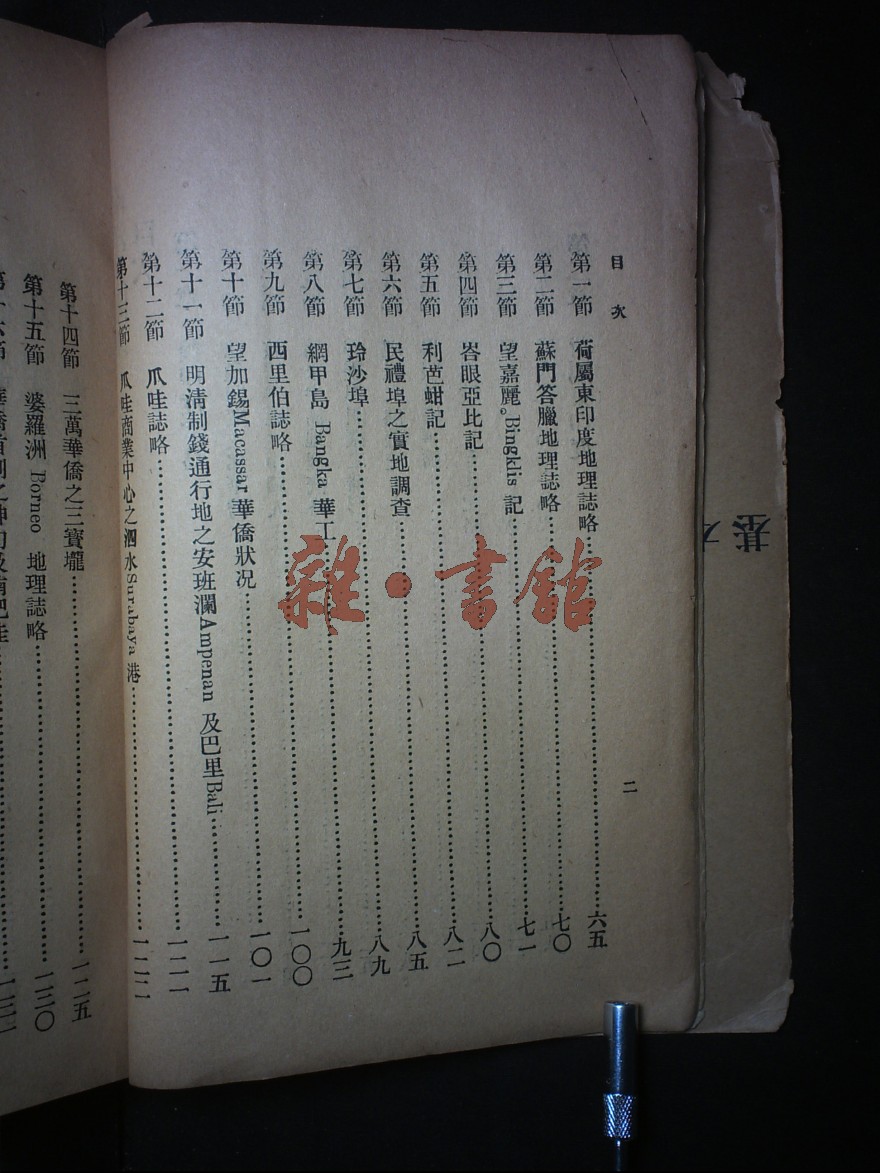 目次
二
第一節 荷屬東印度地理誌略……六五
第二節 蘇門答臘地理誌略……七〇
第三節 望嘉麗。Bingklis 記……七一
第四節 峇眼亞比記……八〇
第五節 利芭蚶記……八二
第六節 民禮埠之實地調查……八五
第七節 玲沙埠……八九
第八節 網甲島 Bangka 華工……九三
第九節 西里伯誌略……一〇〇
第十節 望加錫Macassar 華僑狀况……一〇一
第十一節 明清制錢通行地之安班瀾Ampenan 及巴里Bali……一一五
第十二節 爪哇誌略……一二一
第十三節 爪哇商業中心之泗水Surabaya 港……一二二
第十四節 三萬華僑之三寶壠……一二五
第十五節 婆羅洲 Borneo 地理誌略……一三〇
雜·書館
基